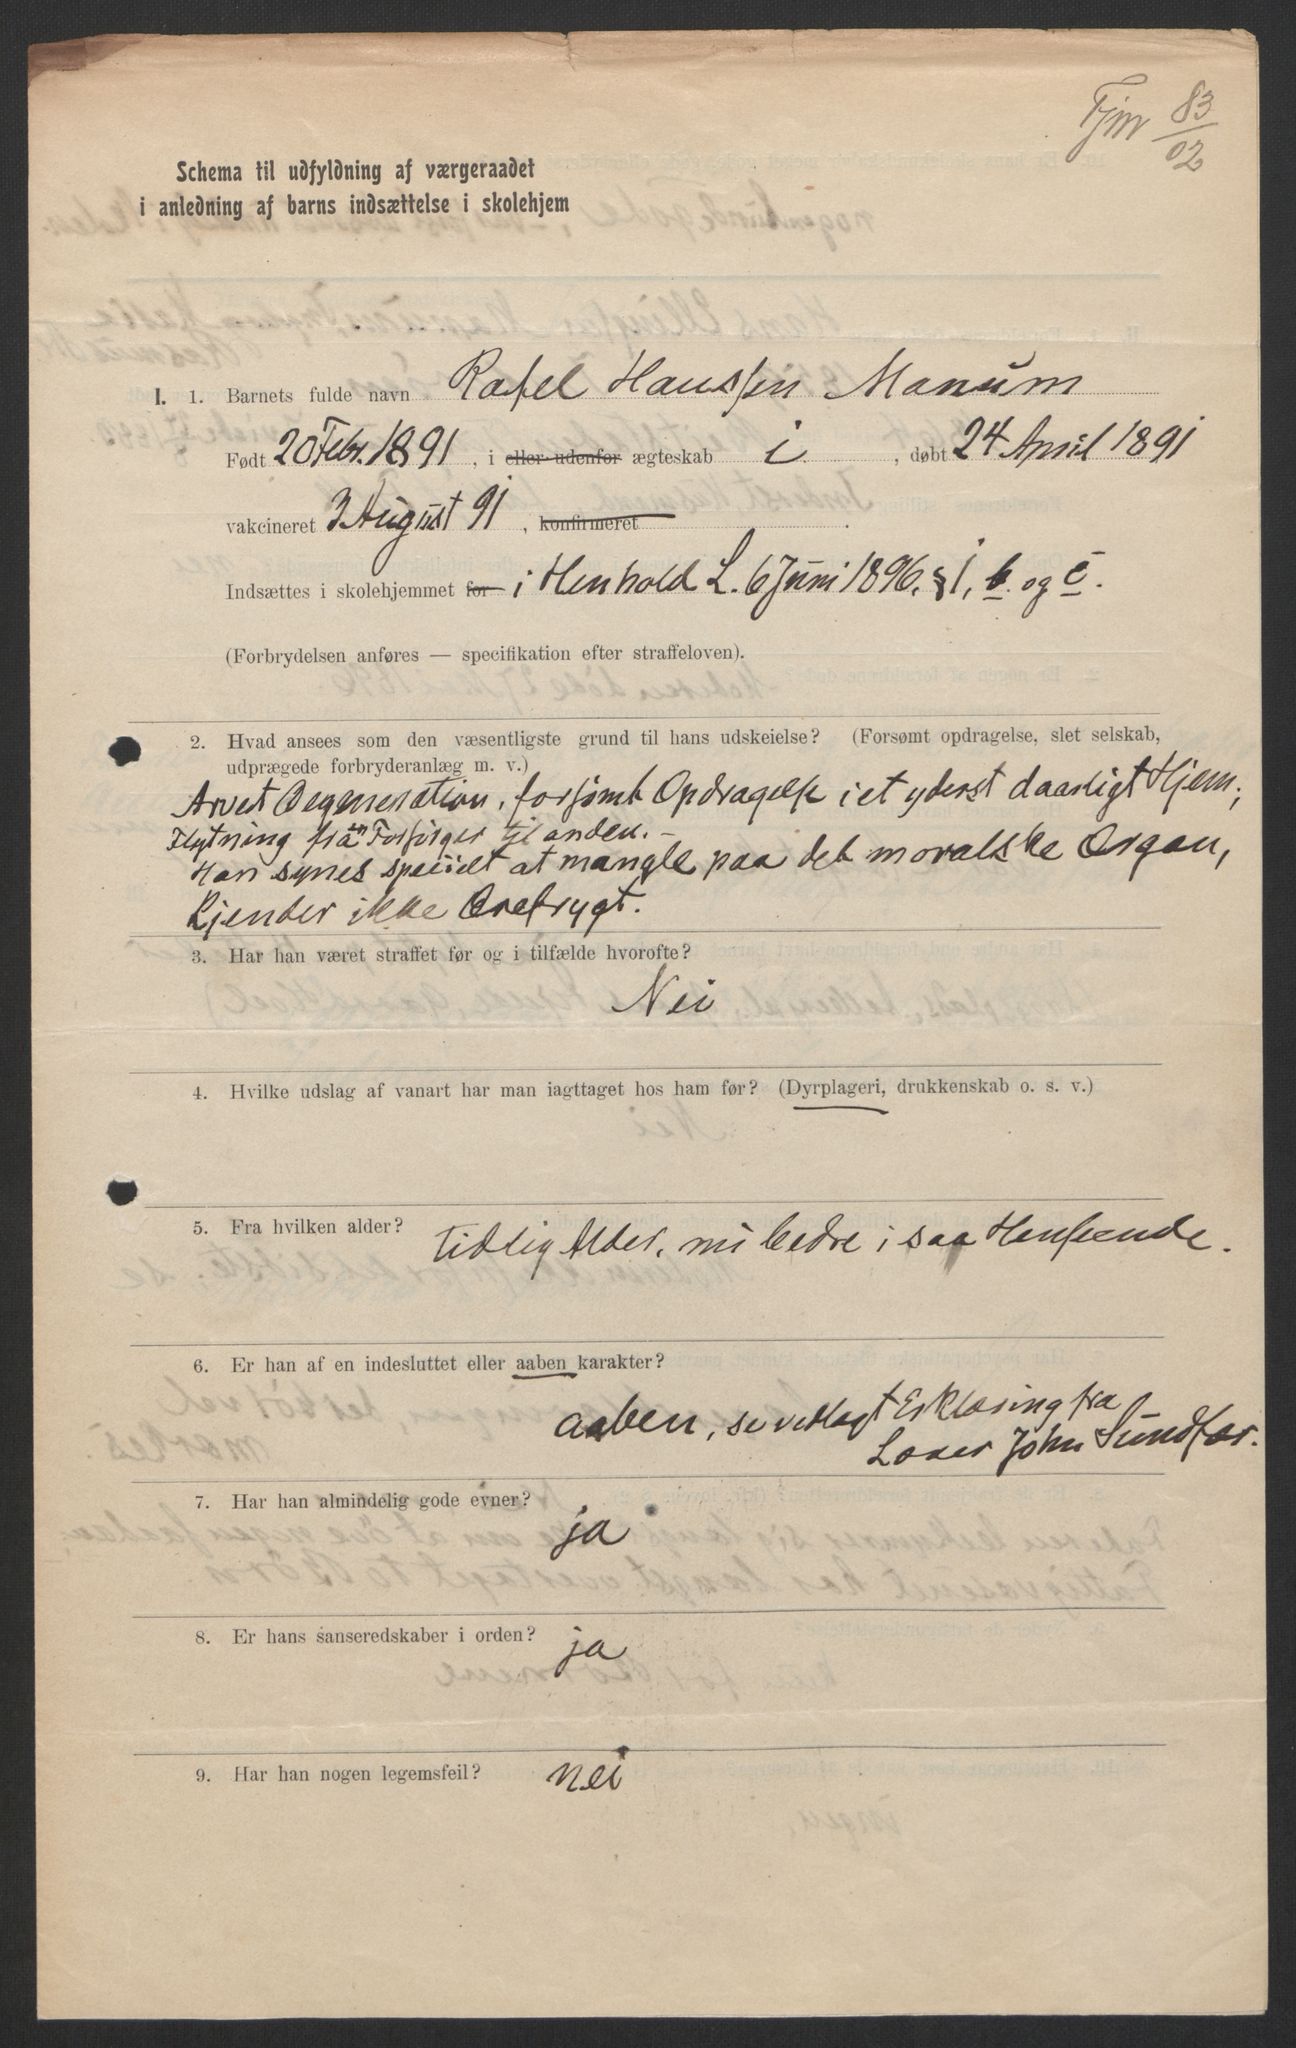 Fjm 83/02
Schema til udfyldning af værgeraadet
i anledning af barns indsættelse i skolehjem
I. 1. Barnets fulde navn Rafel Hanssen Manum
Født 20 Febr. 1891, i eller udenfor ægteskab i, døbt 24 April 1891
vakcineret 3 August 91, konfirmeret
Indsættes i skolehjemmet for i Henhold L. 6 Juni 1896, § 1, b. og c.
(Forbrydelsen anføres — specifikation efter straffeloven).
2. Hvad ansees som den væsentligste grund til hans udskeielse? (Forsømt opdragelse, slet selskab,
udprægede forbryderanlæg m. v.)
Arvet Degeneration, forsømt Opdragelse i et yderst daarligt Hjem;
Flytning fra en Forsørger til anden. –
Han synes specielt at mangle paa det moralske Organ,
kjender ikke Ærefrygt.
3. Har han været straffet før og i tilfælde hvorofte?
Nei
4. Hvilke udslag af vanart har man iagttaget hos ham før? (Dyrplageri, drukkenskab o. s. v.)
5. Fra hvilken alder? tidlig Alder, nu bedre i saa Henseende.
6. Er han af en indesluttet eller aaben karakter?
aaben, se vedlagt Erklæring fra
Lærer John Sundfær.
7. Har han almindelig gode evner?
ja
8. Er hans sanseredskaber i orden? ja
9. Har han nogen legemsfeil? nei